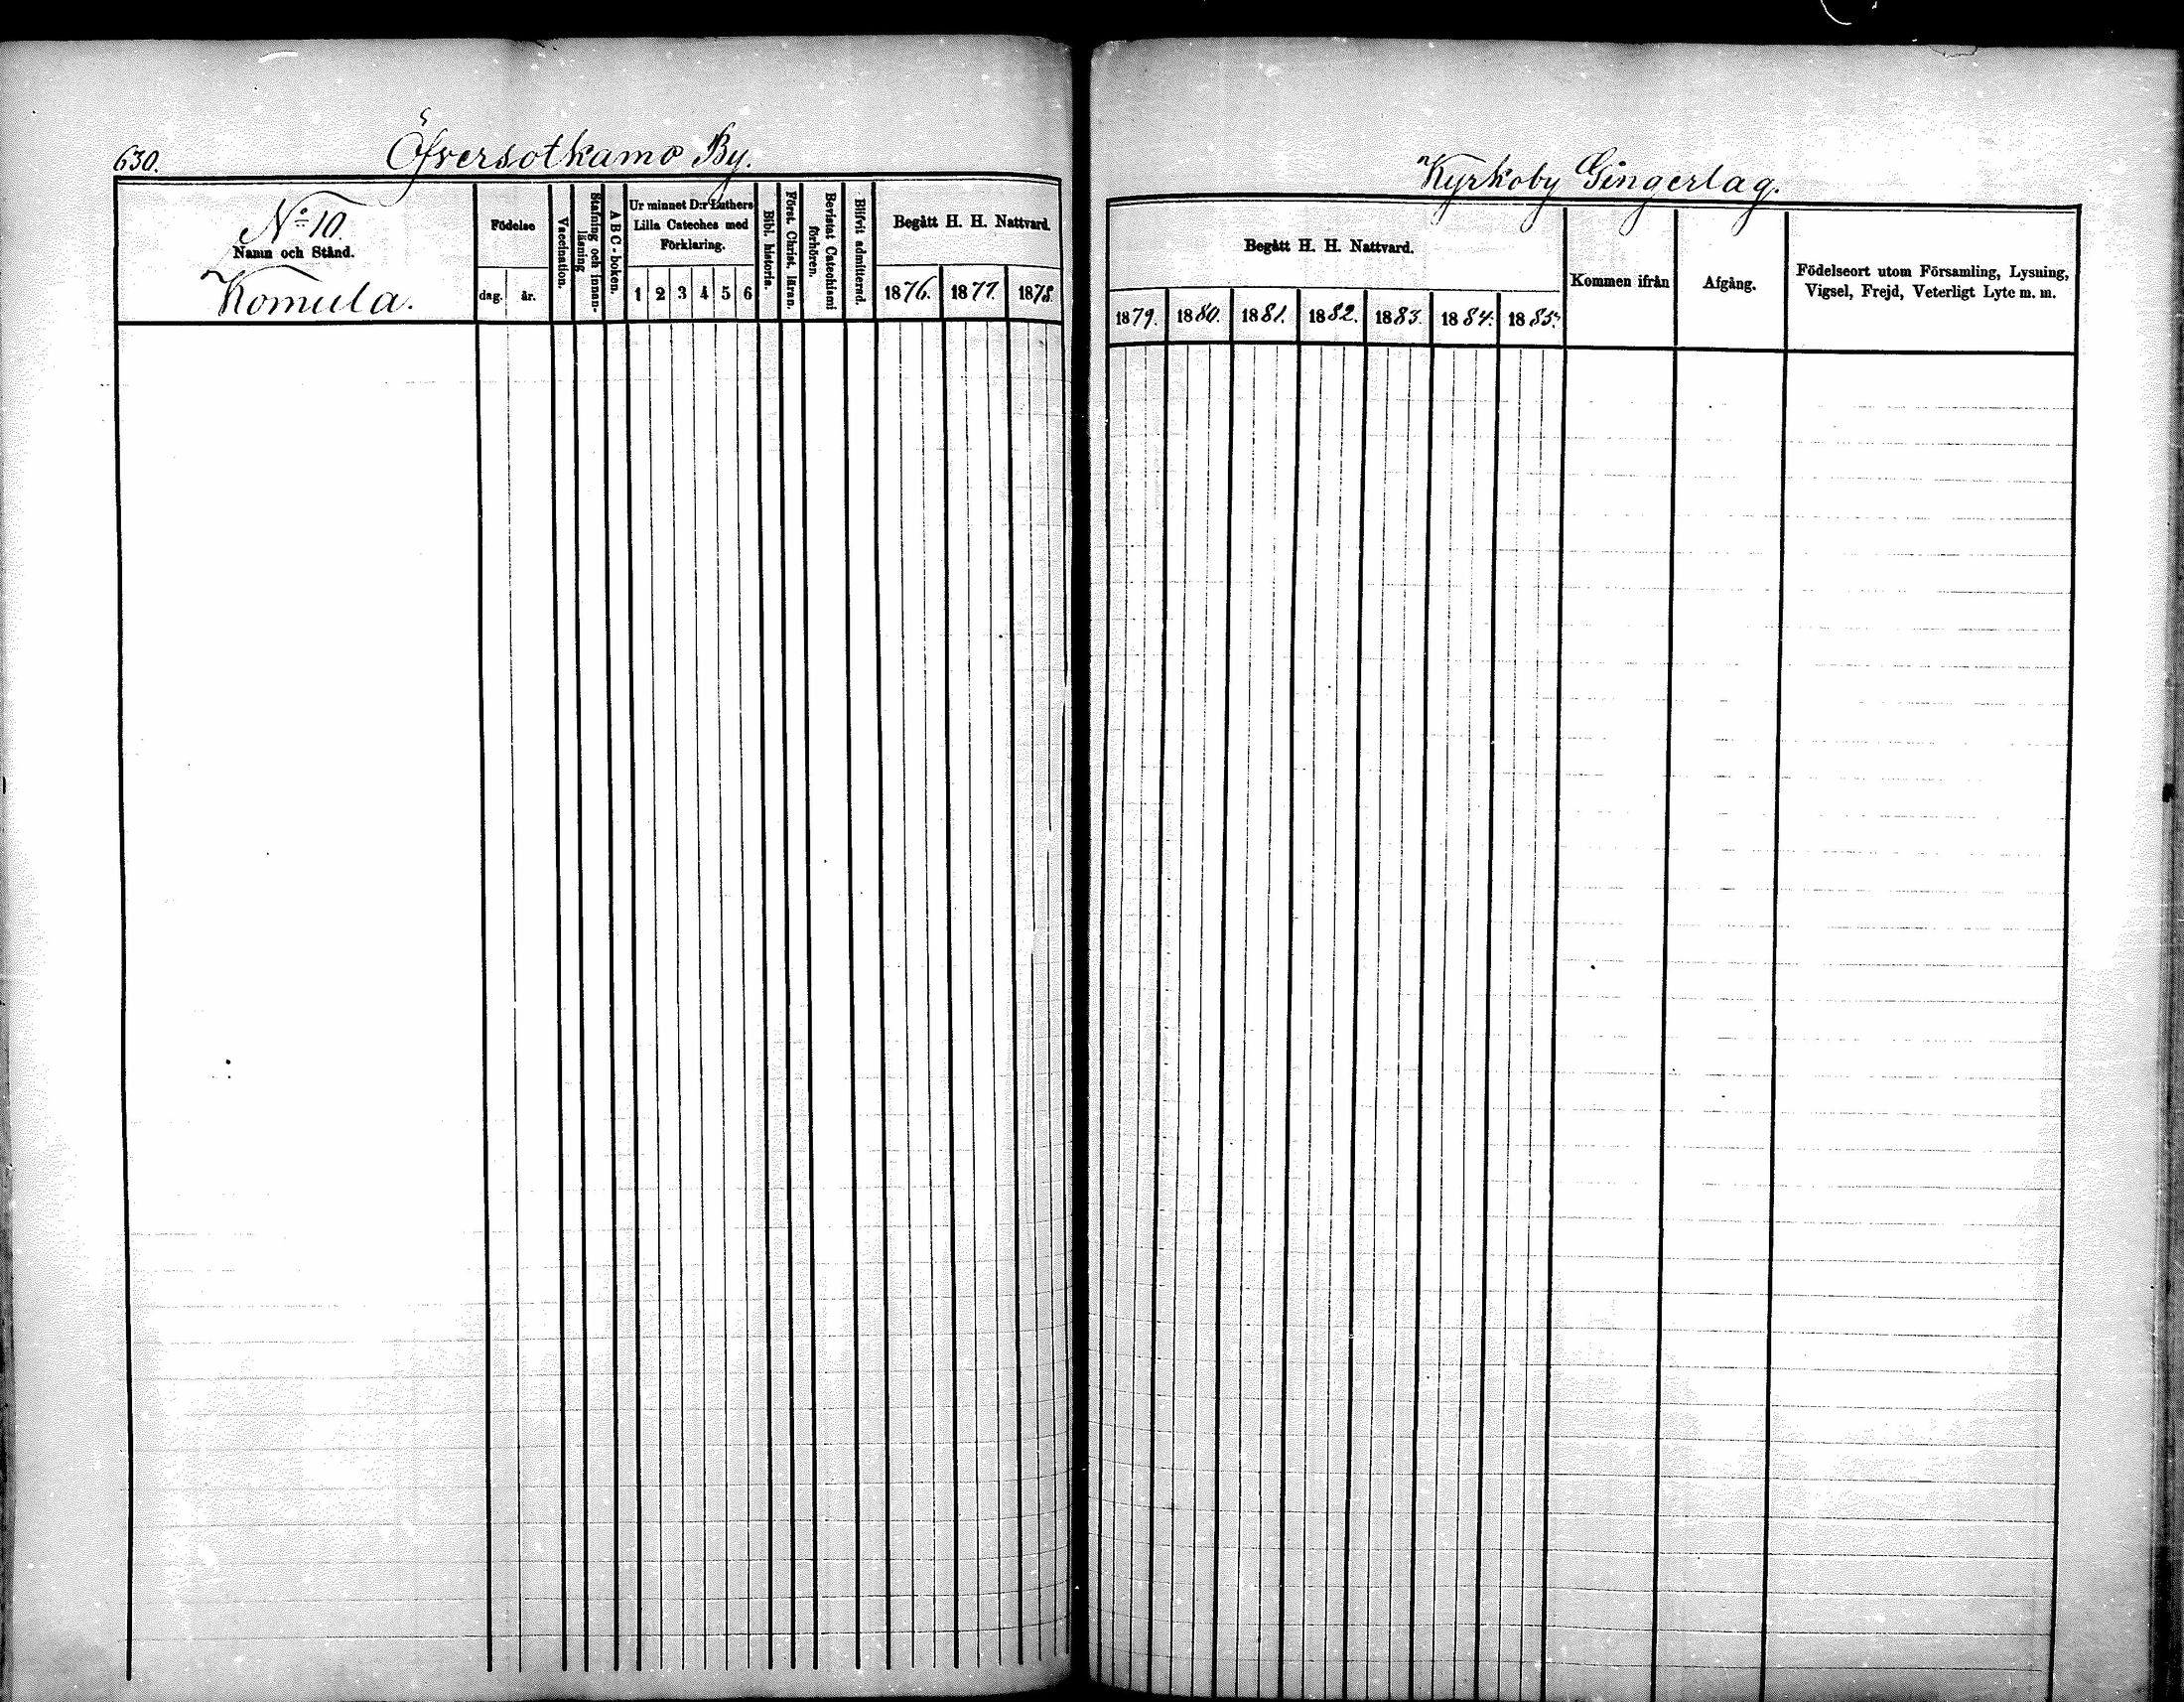 630.
Öfversotkamo By.
No 10.
Namn och Stånd.
Komula.
Födelse
dag.
år.
Vaccination.
Stafning och innan-
läsning
ABC-boken.
Ur minnet D:r Luthers
Lilla Cateches med
Förklaring.
1 2 3 4 5 6
Bibl. historia.
Först. Christ. läran.
Bevistat Catechismi
förhören.
Blifvit admitterad.
Begått H. H. Nattvard.
1876. 1877. 1878.
Kyrkoby Gingerlag.
Begått H. H. Nattvard.
1879. 1880. 1881. 1882. 1883. 1884. 1885.
Kommen ifrån
Afgång.
Födelseort utom Församling, Lysning,
Vigsel, Frejd, Veterligt Lyte m. m.